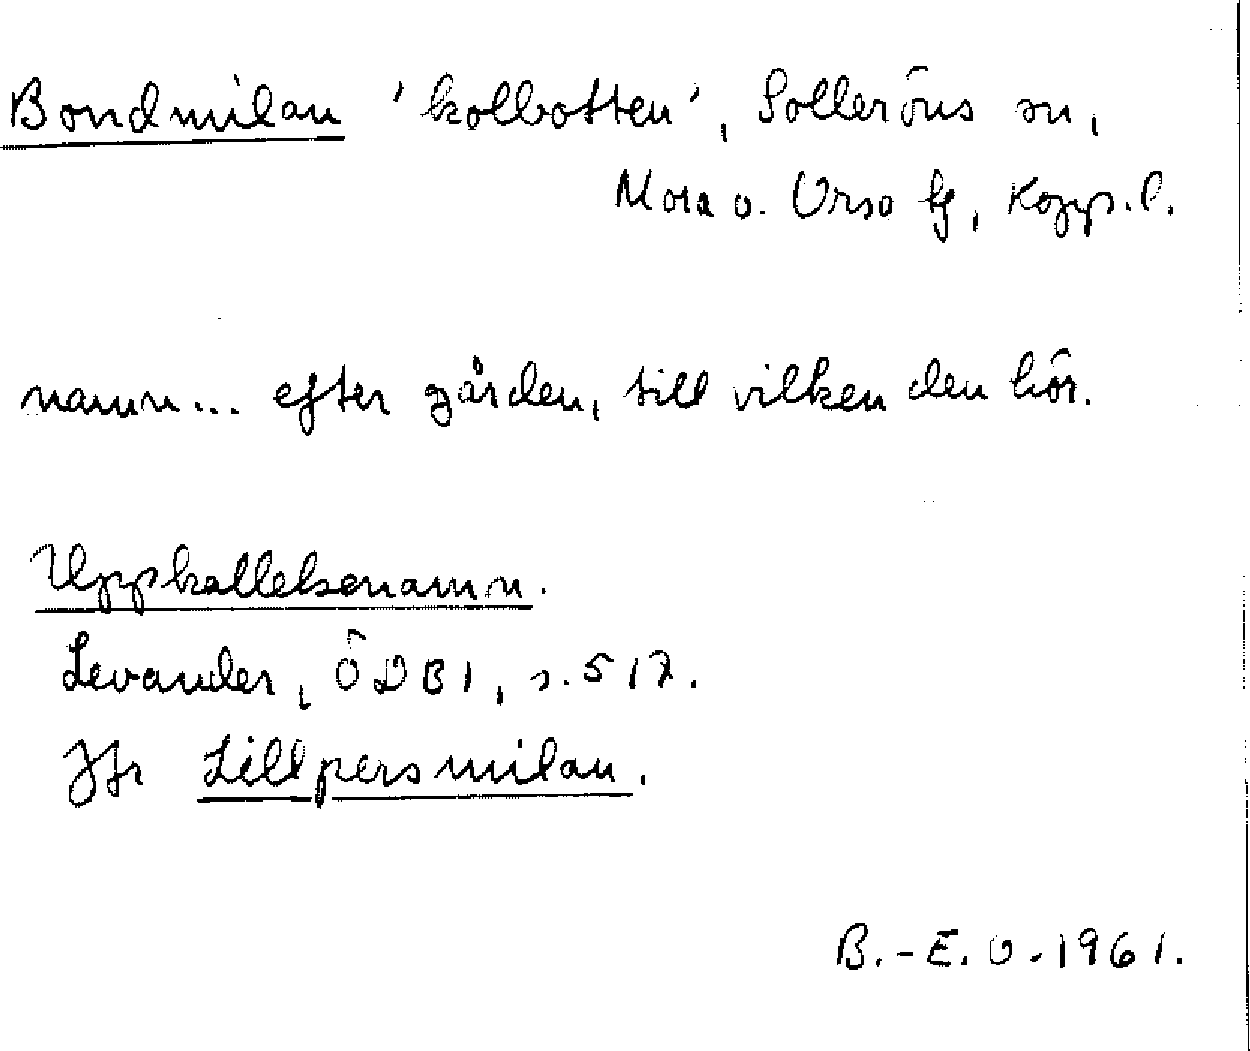 Bondmilan 'kolbotten', Solleröns sn,
Mora o. Orsa tg, Kopp. l.
namn... efter gården, till vilken den hör.
Uppkallelsenamn.
Levander, ÖDB I, s. 517.
Jfr Lillpersmilan.
B.-E. O. 1961.